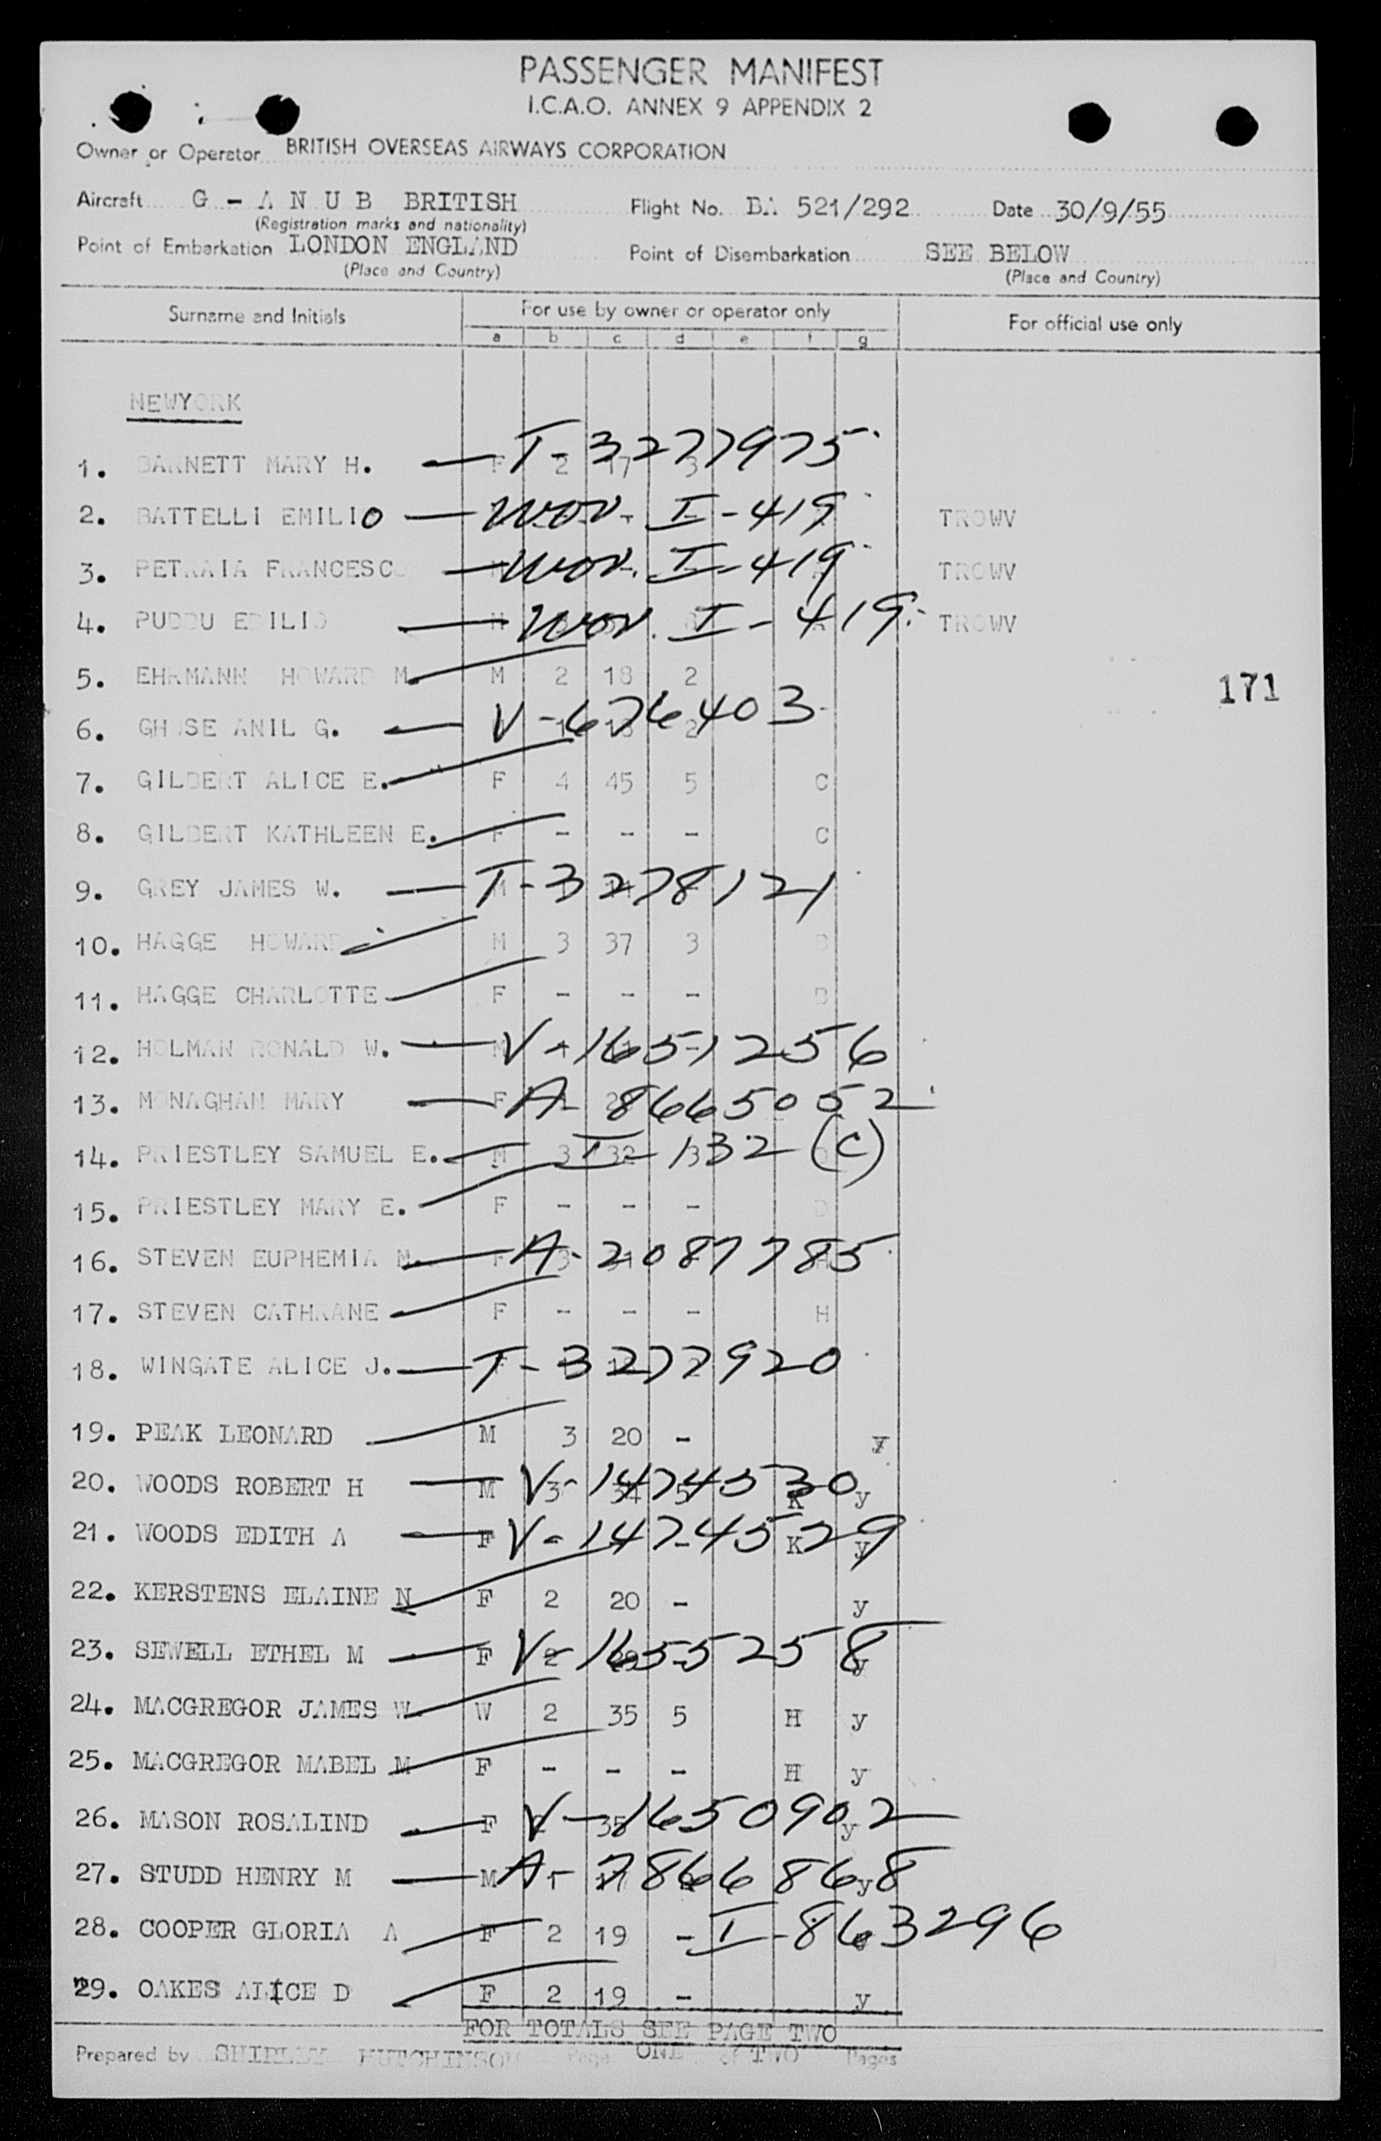 PASSENGER MANIFEST
I.C.A.O. ANNEX 9 APPENDIX 2
Owner or Operator BRITISH OVERSEAS AIRWAYS CORPORATION
Aircraft G - A N U B BRITISH Flight No. BA 521/292 Date 30/9/55
(Registration marks and nationality)
Point of Embarkation LONDON ENGLAND Point of Disembarkation SEE BELOW
(Place and Country) (Place and Country)
Surname and Initials For use by owner or operator only For official use only
a b c d e f g
NEWYORK
1. BARNETT MARY H. F 2 17 3 T-3277975
2. BATTELLI EMILIO Wov. I-419 TROWV
3. PETRAIA FRANCESCO Wov. I-419 TROWV
4. PUDDU EDILIO M Wov. I-419 TROWV
5. EHRMANN HOWARD M. M 2 18 2
171
6. GHOSE ANIL G. V-676403 2
7. GILBERT ALICE E. F 4 45 5 C
8. GILBERT KATHLEEN E. F - - - C
9. GREY JAMES W. M T-3278121
10. HAGGE HOWARD M 3 37 3 D
11. HAGGE CHARLOTTE F - - - D
12. HOLMAN RONALD W. M V-1651256
13. MONAGHAN MARY F A-8665052
14. PRIESTLEY SAMUEL E. M 3 32 3 I-132 (C)
15. PRIESTLEY MARY E. F - - - D
16. STEVEN EUPHEMIA M. F 3 A-2087785 H
17. STEVEN CATHRANE F - - - H
18. WINGATE ALICE J. F T-3277920
19. PEAK LEONARD M 3 20 - y
20. WOODS ROBERT H M 3 34 5 V-1474530 K y
21. WOODS EDITH A F V-1474529 K y
22. KERSTENS ELAINE N F 2 20 - y
23. SEWELL ETHEL M F 2 V-1655258 y
24. MACGREGOR JAMES W. W 2 35 5 H y
25. MACGREGOR MABEL M F - - - H y
26. MASON ROSALIND F V-1650902 y
27. STUDD HENRY M M A-7866868 y
28. COOPER GLORIA A F 2 19 - I-863296
29. OAKES ALICE D F 2 19 - y
FOR TOTALS SEE PAGE TWO
Prepared by SHIRLEY HUTCHINSON Page ONE of TWO Pages